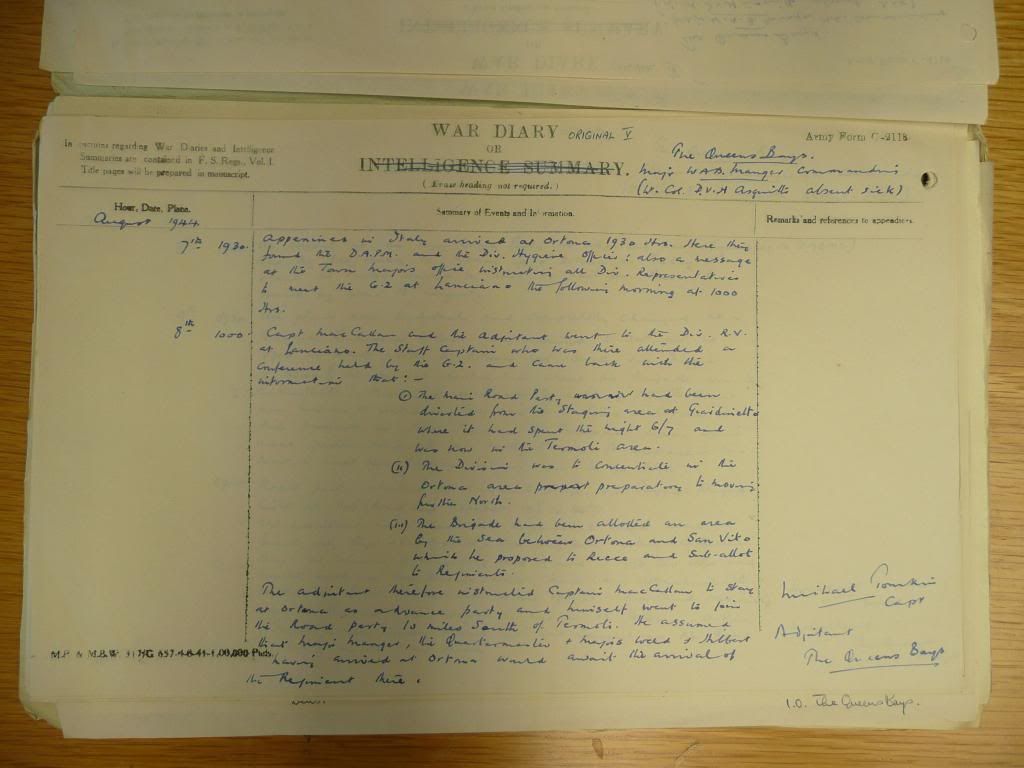 WAR DIARY ORIGINAL V
OR
INTELLIGENCE SUMMARY.
(Erase heading not required.)
In structions regarding War Diaries and Intelligence
Summaries are contained in F. S. Regs., Vol. I.
Title pages will be prepared in manuscript.
Army Form C-2118
The Queens Bays.
Major W.A.B. Manger Commanding
(Lt. Col. D.V.H Asquith absent sick)
Hour, Date, Place.
Summary of Events and Information.
Remarks and references to appendices.
August 1944
7th 1930. Appenines in Italy arrived at Ortona 1930 Hrs. Here they
found the D.A.P.M. and the Div. Hygiene Officer: also a message
at the Town Majors office instructing all Div. Representatives
to meet the G.2 at Lanciano the following morning at 1000
Hrs.
8th 1000. Capt MacCallan and the Adjutant went to the Div. R.V.
at Lanciano. The Staff Captain who was there attended a
conference held by the G.2. and came back with the
information that:-
(i) The main Road Party had been
diverted from the Staging area at
where it had spent the night 6/7 and
was now in the Termoli area.
(ii) The Division was to concentrate in the
Ortona area preparatory to moving
further North.
(iii) The Brigade had been allotted an area
by the Sea between Ortona and San Vito
which he proposed to Recce and Sub-allot
to Regiments.
The adjutant therefore instructed Captain MacCallan to stay
at Ortona as advance party and himself went to join
the Road party 10 miles South of Termoli. He assumed
that Major Manger, the Quartermaster + Majors &
having arrived at Ortona would await the arrival of
the Regiment there.
Michael Tomkin
Capt
Adjutant
The Queens Bays
I.O. The Queens Bays.